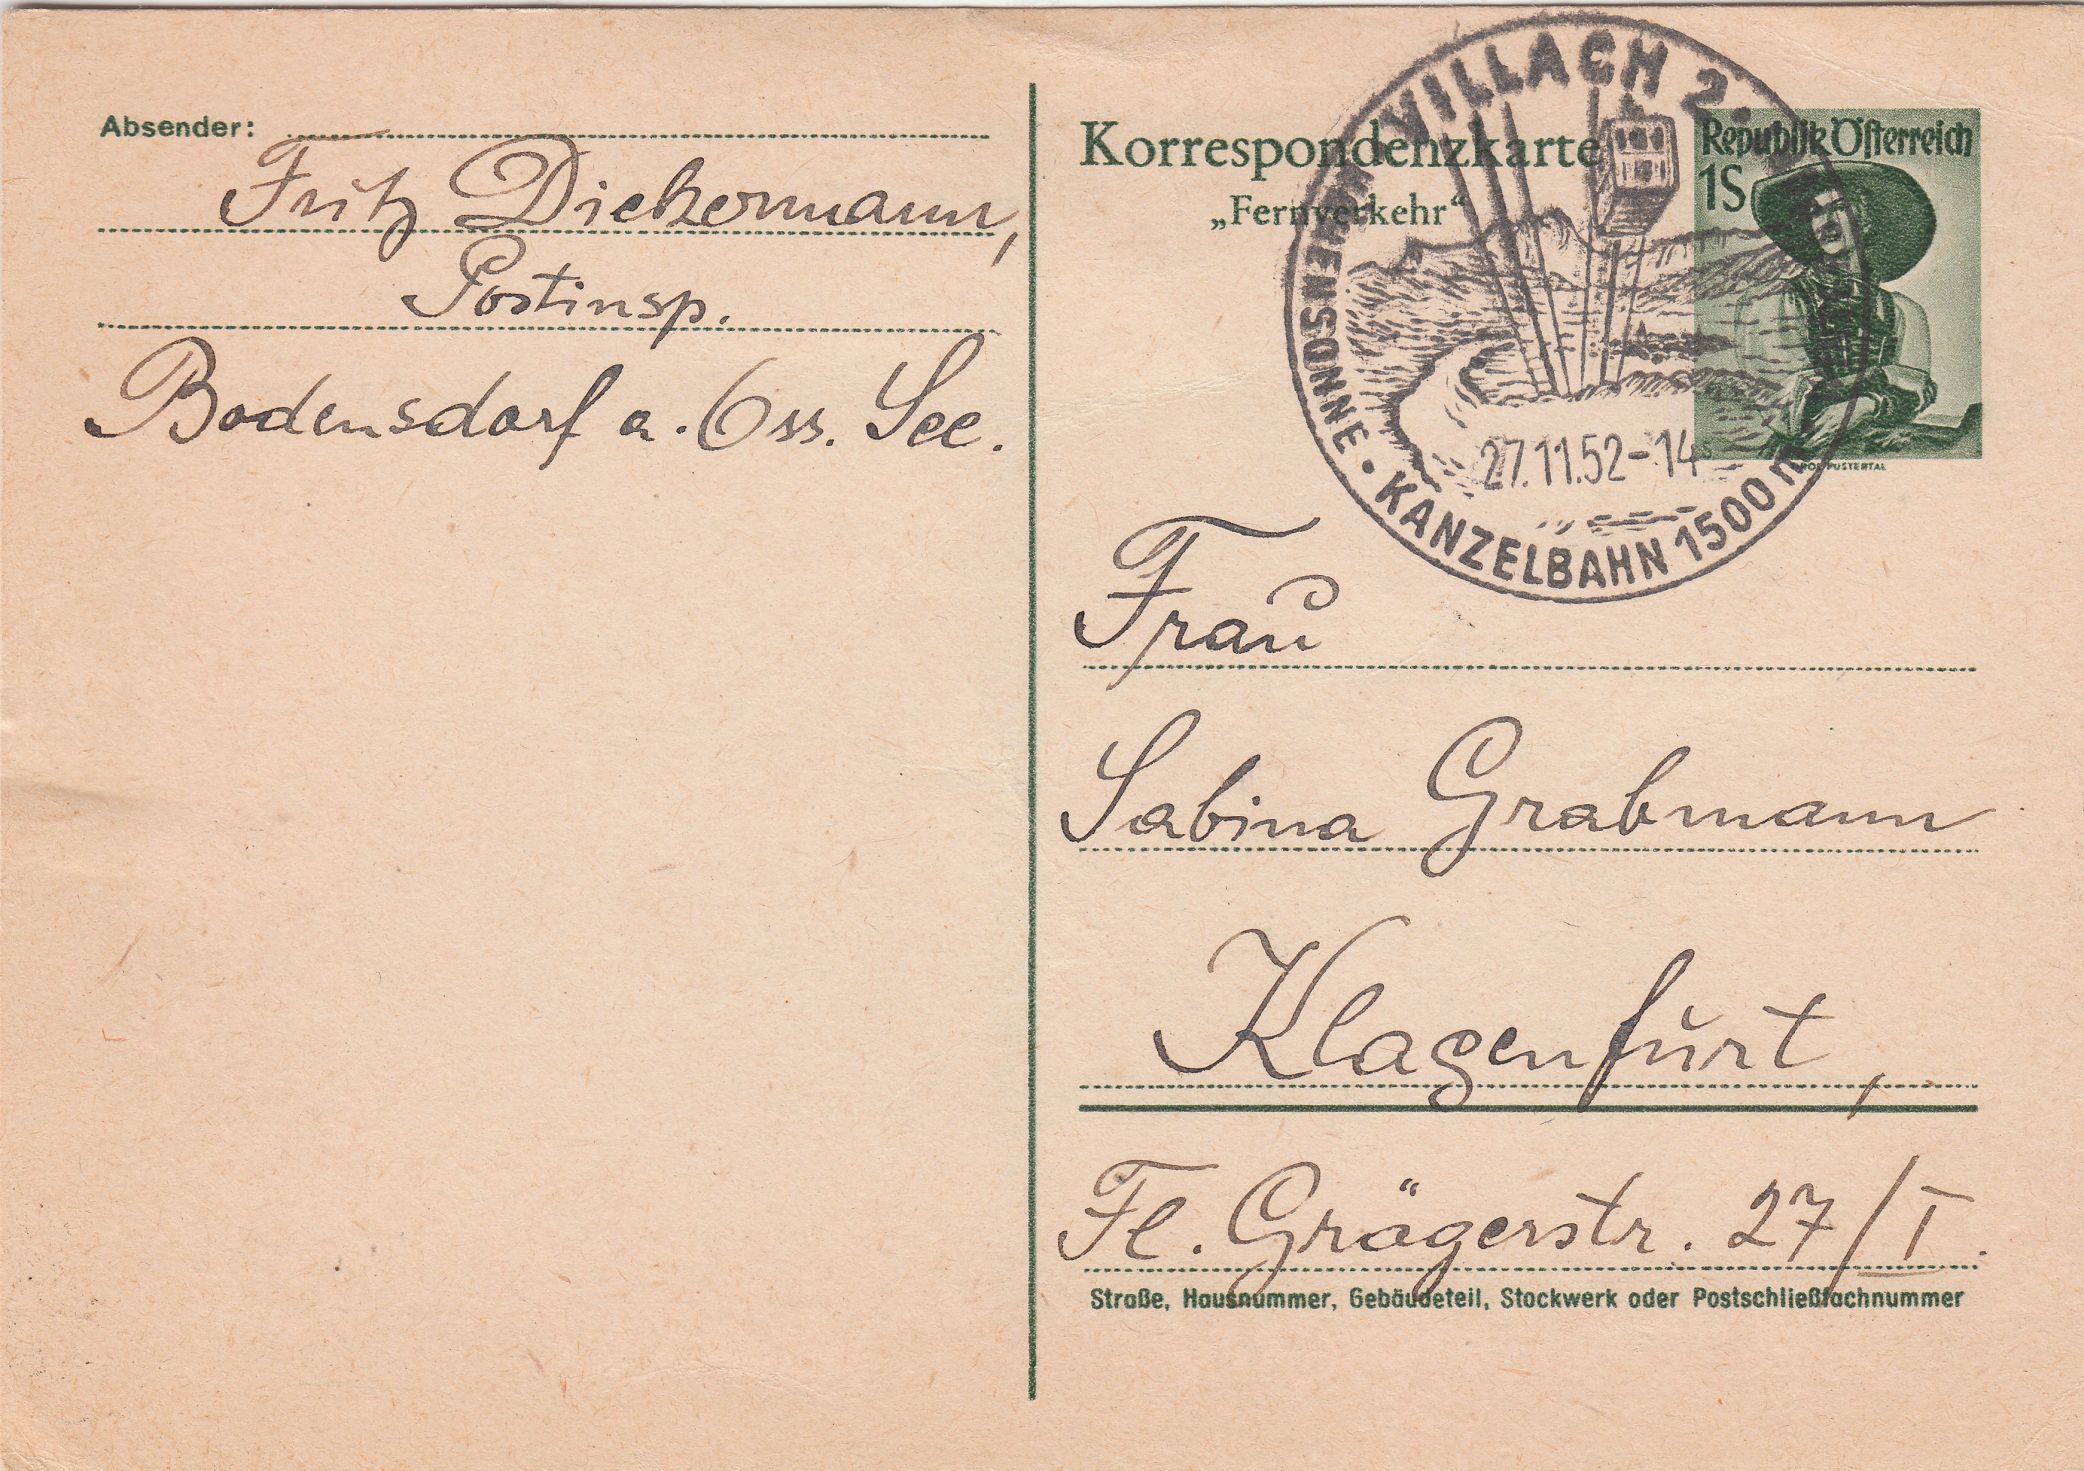 Absender:
Fritz Diekermann,
Postinsp.
Bodensdorf a. Oss. See.
Korrespondenzkarte
„Fernverkehr“
VILLACH 2
HÖHENSONNE • KANZELBAHN 1500 m
27.11.52-14
Republik Österreich
1S
TIROL PUSTERTAL
Frau
Sabina Grabmann
Klagenfurt,
Fl. Grögerstr. 27/I.
Straße, Hausnummer, Gebäudeteil, Stockwerk oder Postschließfachnummer